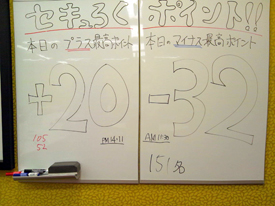 セキュろく ポイント!!
本日の プラス最高ポイント
+20
105
52
PM14-11
本日の マイナス最高ポイント
-32
AM10:30
151名